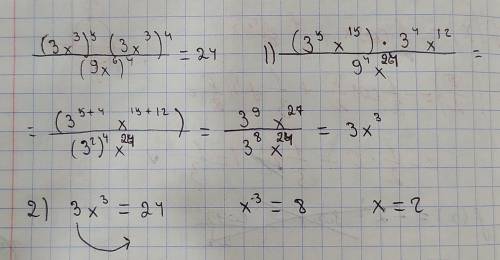 (3x³)⁵ (3x³)⁴ / (9x⁶)⁴ = 24   1) (3⁵ x¹⁵) · 3⁴ x¹² / 9⁴ x²⁴ =
= (3⁵⁺⁴ x¹⁵⁺¹²) / (3²)⁴ x²⁴ = 3⁹ x²⁷ / 3⁸ x²⁴ = 3x³
2) 3x³ = 24   x³ = 8   x = 2